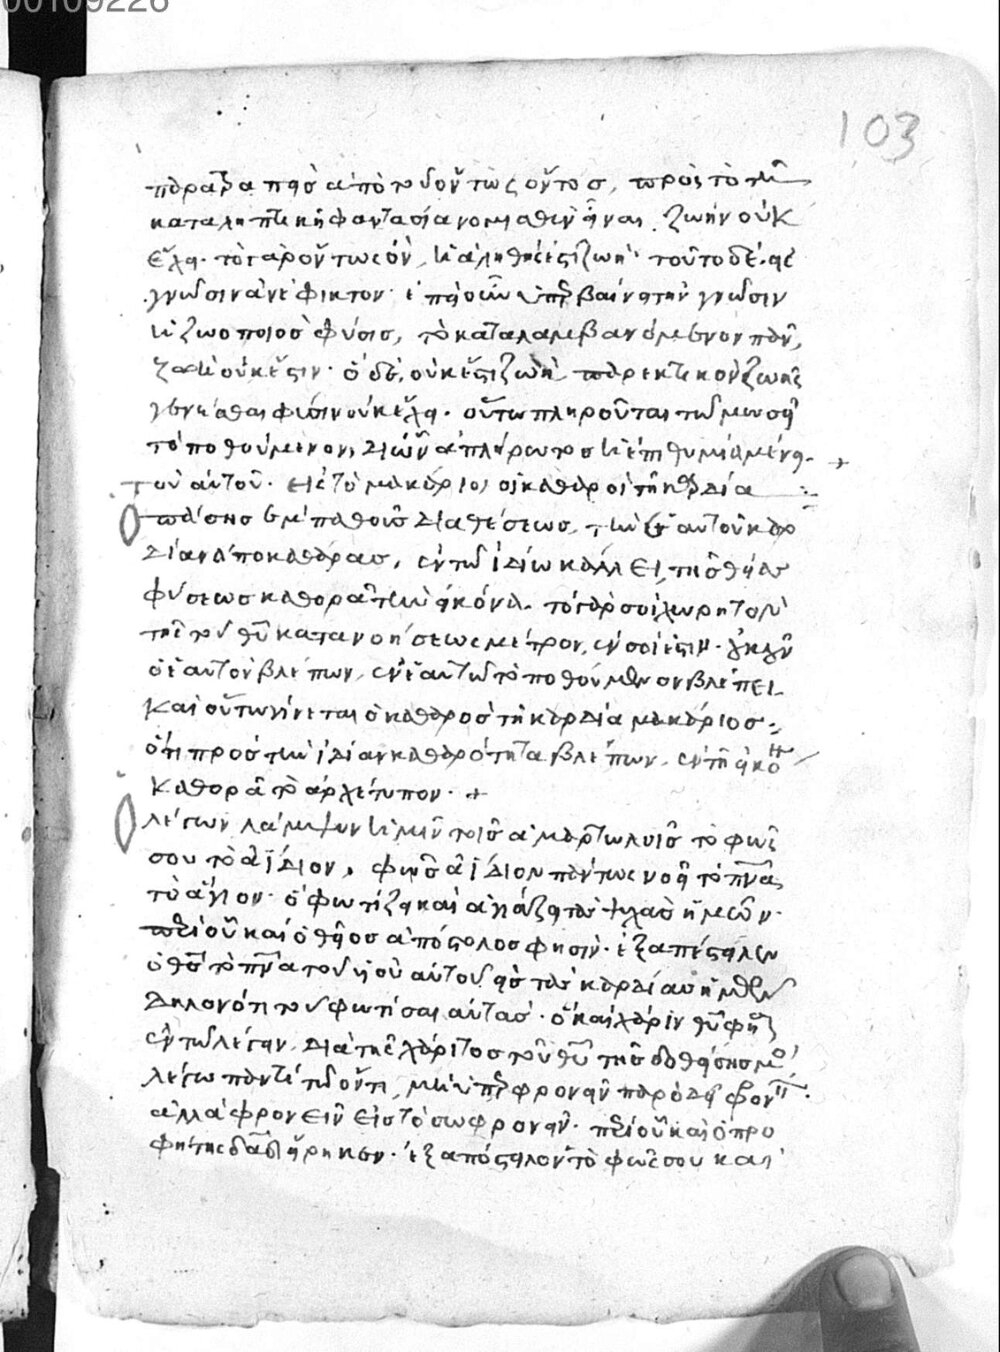 00109226
103
παρατραπεὶς ἀπὸ τοῦ ὄντως ὄντος, πρὸς τὸ τῇ
καταληπτικῇ φαντασίᾳ νομισθὲν εἶναι, ζωὴν οὐκ
ἔχει. τὸ γὰρ ὄντως ὂν, ἡ ἀληθής ἐστι ζωή. τοῦτο δὲ, εἰς
γνῶσιν ἀνέφικτον. εἰ οὖν ὑπερβαίνει τὴν γνῶσιν
ἡ ζωοποιὸς φύσις, τὸ καταλαμβανόμενον πάντως,
ζωὴ οὐκ ἔστιν. ὃ δὲ, οὐκ ἔστι ζωὴ παρεκτικὸν ζωῆς
γενέσθαι φύσιν οὐκ ἔχει. οὕτω πληροῦται τῷ μωσῇ
τὸ ποθούμενον, δι' ὧν ἀπλήρωτος ἡ ἐπιθυμία μένει. +
τοῦ αὐτοῦ. εἰς τὸ μακάριοι οἱ καθαροὶ τῇ καρδίᾳ
Ὁ πάσης ἐμπαθοῦς διαθέσεως, τὴν ἑαυτοῦ καρ
δίαν ἀποκαθάρας, ἐν τῷ ἰδίω κάλλει, τῆς θείας
φύσεως καθορᾶ τὴν εἰκόνα. τὸ γάρ σοι χωρητὸν
τῆς τοῦ θυ κατανοήσεως μέτρον, ἐν σοί ἐστιν.
ὁ ἑαυτὸν βλέπων, ἐν ἑαυτῷ τὸ ποθούμενον βλέπει.
Καὶ οὕτω γίνεται ὁ καθαρὸς τῇ καρδία μακάριος.
ὅτι πρὸς τὴν ἰδίαν καθαρότητα βλέπων, ἐν τῇ εἰκόνι
καθορᾶ τὸ ἀρχέτυπον. +
Ὁ λέγων λάμψον καὶ ἡμῖν τοῖς ἁμαρτωλοῖς τὸ φῶς
σου τὸ ἀΐδιον, φῶς ἀΐδιον πάντως νοεῖ τὸ πνα
τὸ ἅγιον. ὁ φωτίζει καὶ ἁγιάζει τὰς ψυχὰς ἡμῶν.
περὶ οὗ καὶ ὁ θεῖος ἀπόστολος φησὶν. ἐξαπέστειλεν
ὁ θς τὸ πνα τοῦ υἱοῦ αὐτοῦ εἰς τὰς καρδίας ἡμῶν
Δηλονότι τοῦ φωτίσαι αὐτάς. ὃ καὶ χάριν θυ φησὶ
ἐν τῷ λέγειν, διὰ τῆς χάριτος τοῦ θυ τῆς δοθείσης μοι,
λέγω παντὶ τῷ ὄντι, μὴ ὑπερφρονεῖν παρ' ὃ δεῖ φρονεῖν.
ἀλλὰ φρονεῖν εἰς τὸ σωφρονεῖν. περὶ οὗ καὶ ὁ προ
φήτης δαδ εἴρηκεν. ἐξαπόστειλον τὸ φῶς σου καὶ